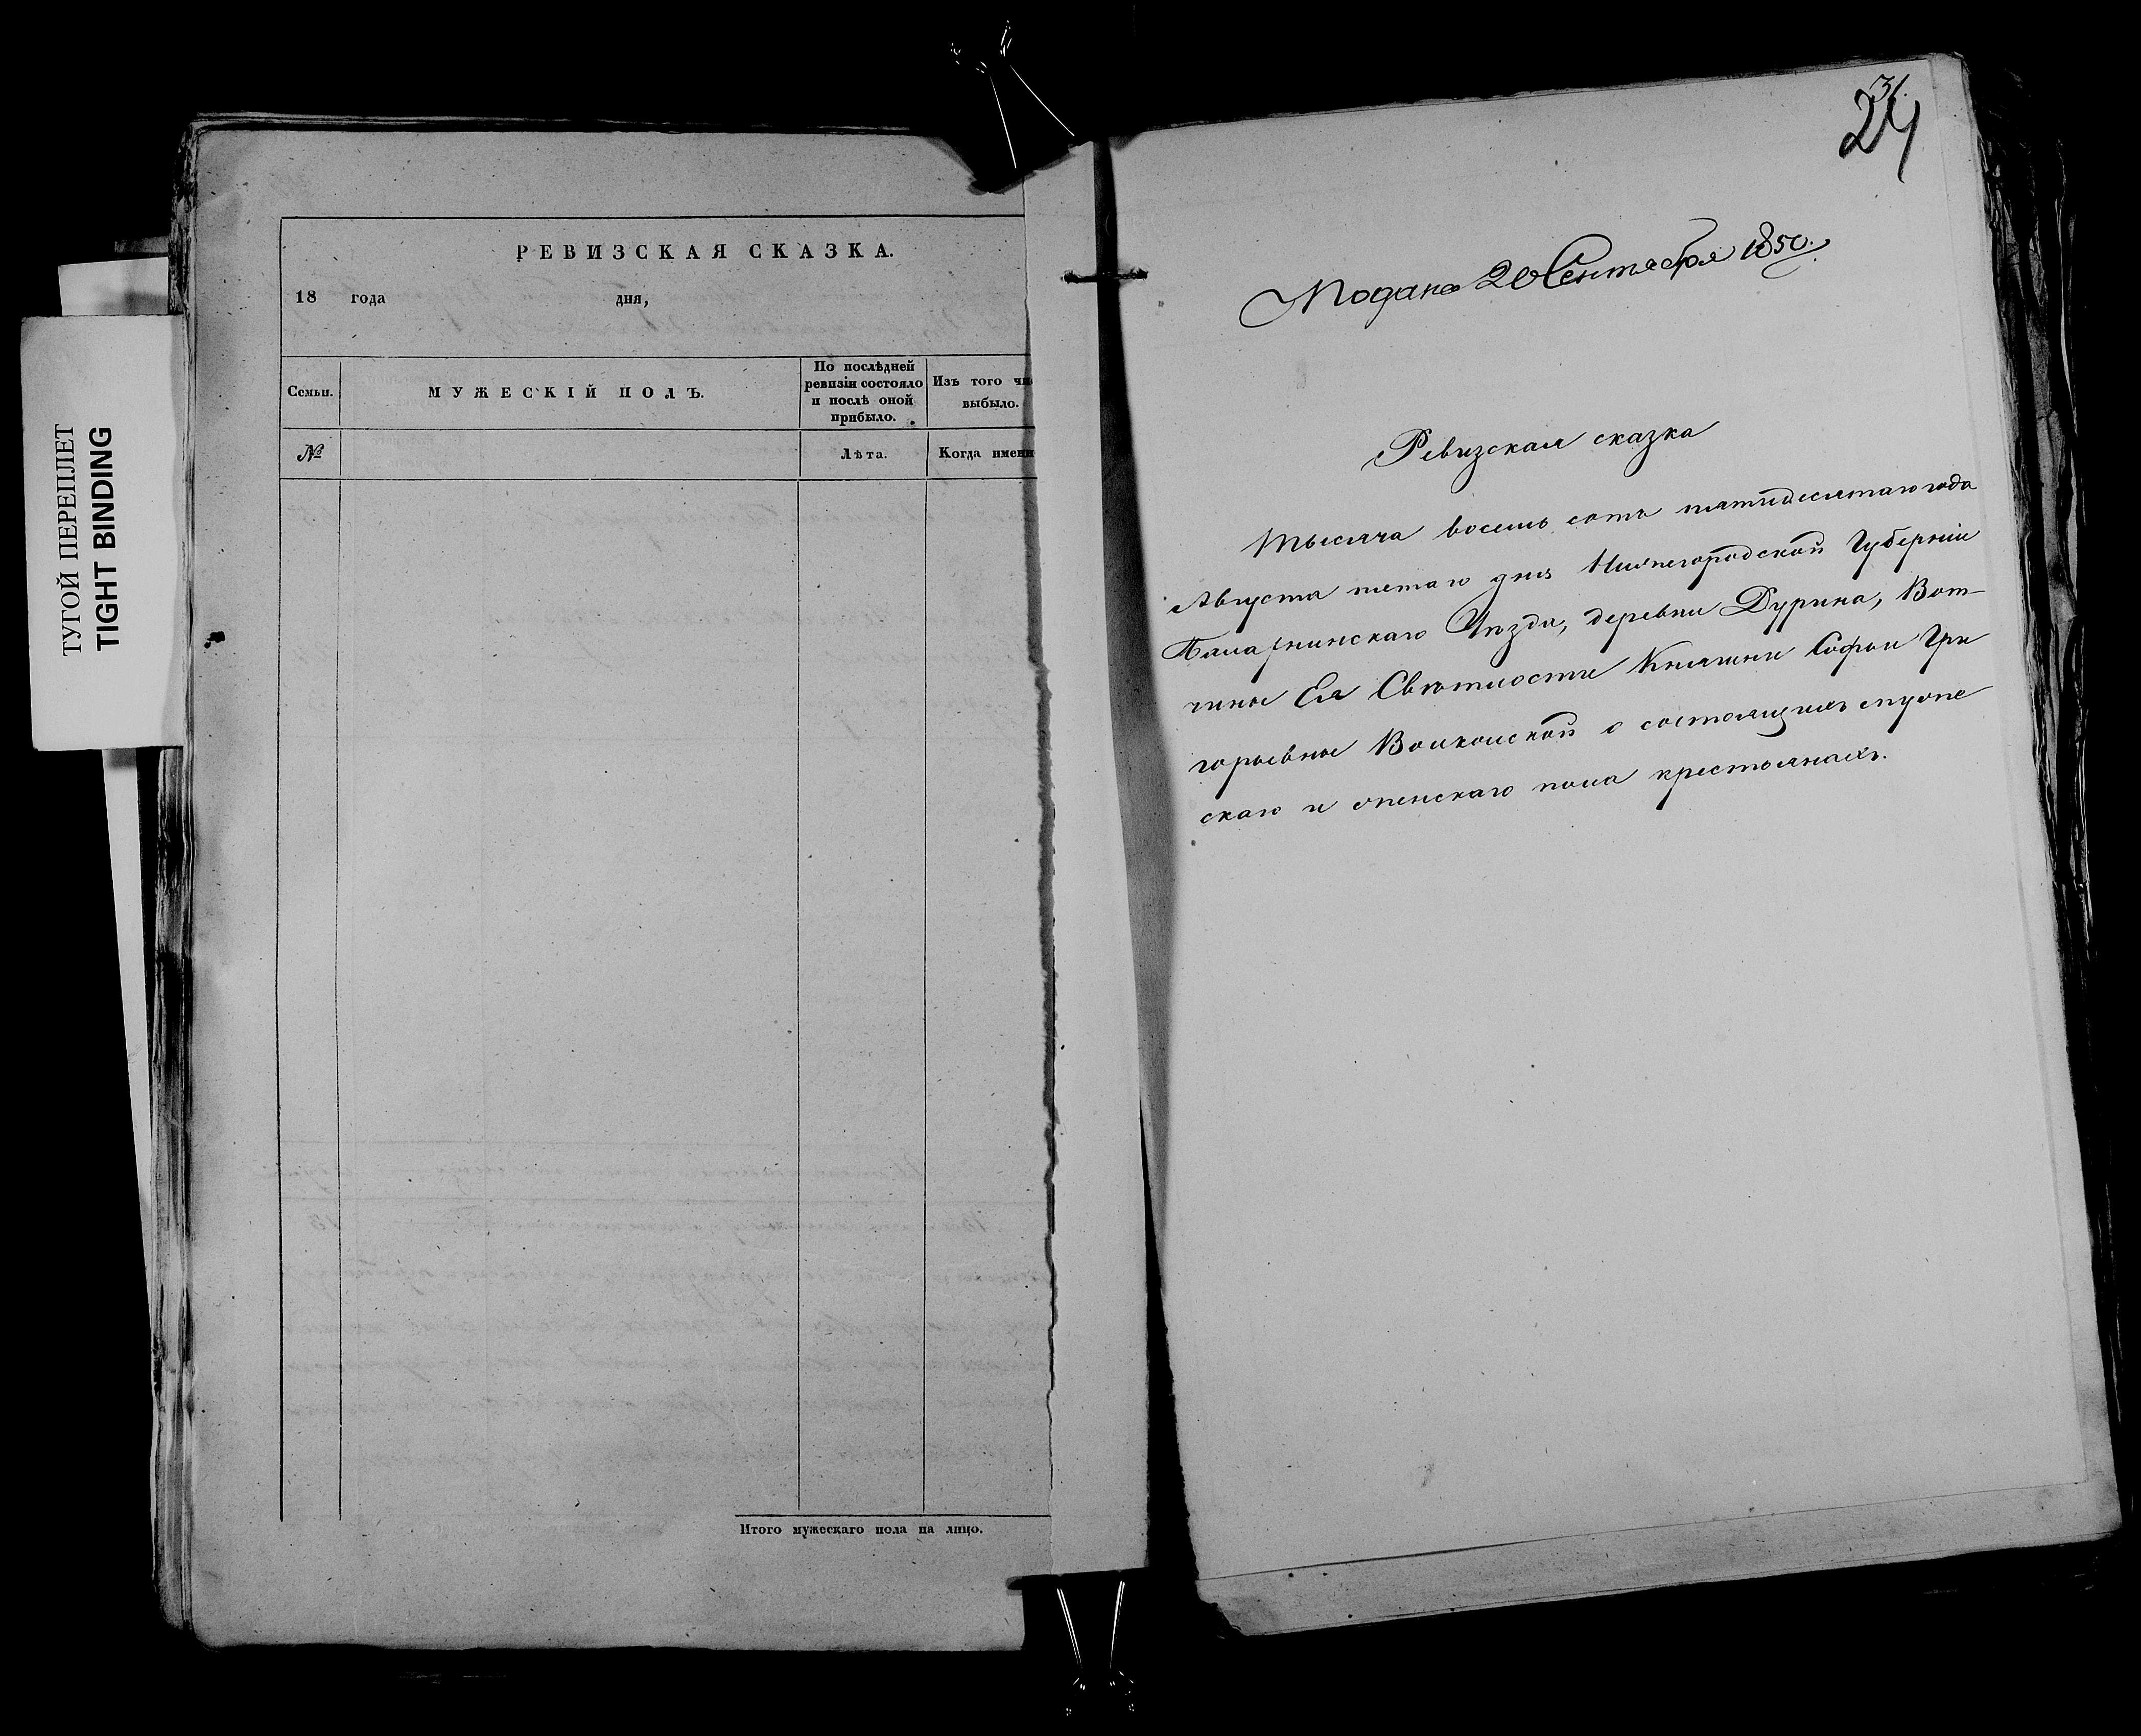 ТУГОЙ ПЕРЕПЛЕТ
TIGHT BINDING
РЕВИЗСКАЯ СКАЗКА.
18 года дня,
Семьи.
МУЖЕСКІЙ ПОЛЪ.
По послѣдней
ревизіи состояло
и послѣ оной
прибыло.
Изъ того
выбыло.
№
Лѣта.
Когда
Итого мужескаго пола на лицо.
31.
24
Подана 20 Сентября 1850.
Ревизская сказка
Тысяча восемь сотъ пятидесятаго года
Августа дня Нижегородской Губерніи
Балахнинскаго Уѣзда, деревни Дурина, Вот-
чины Ея Свѣтлости Княгини Софьи Гри
горьевны Волконской о состоящихъ мужс
скаго и женскаго пола крестьянахъ.